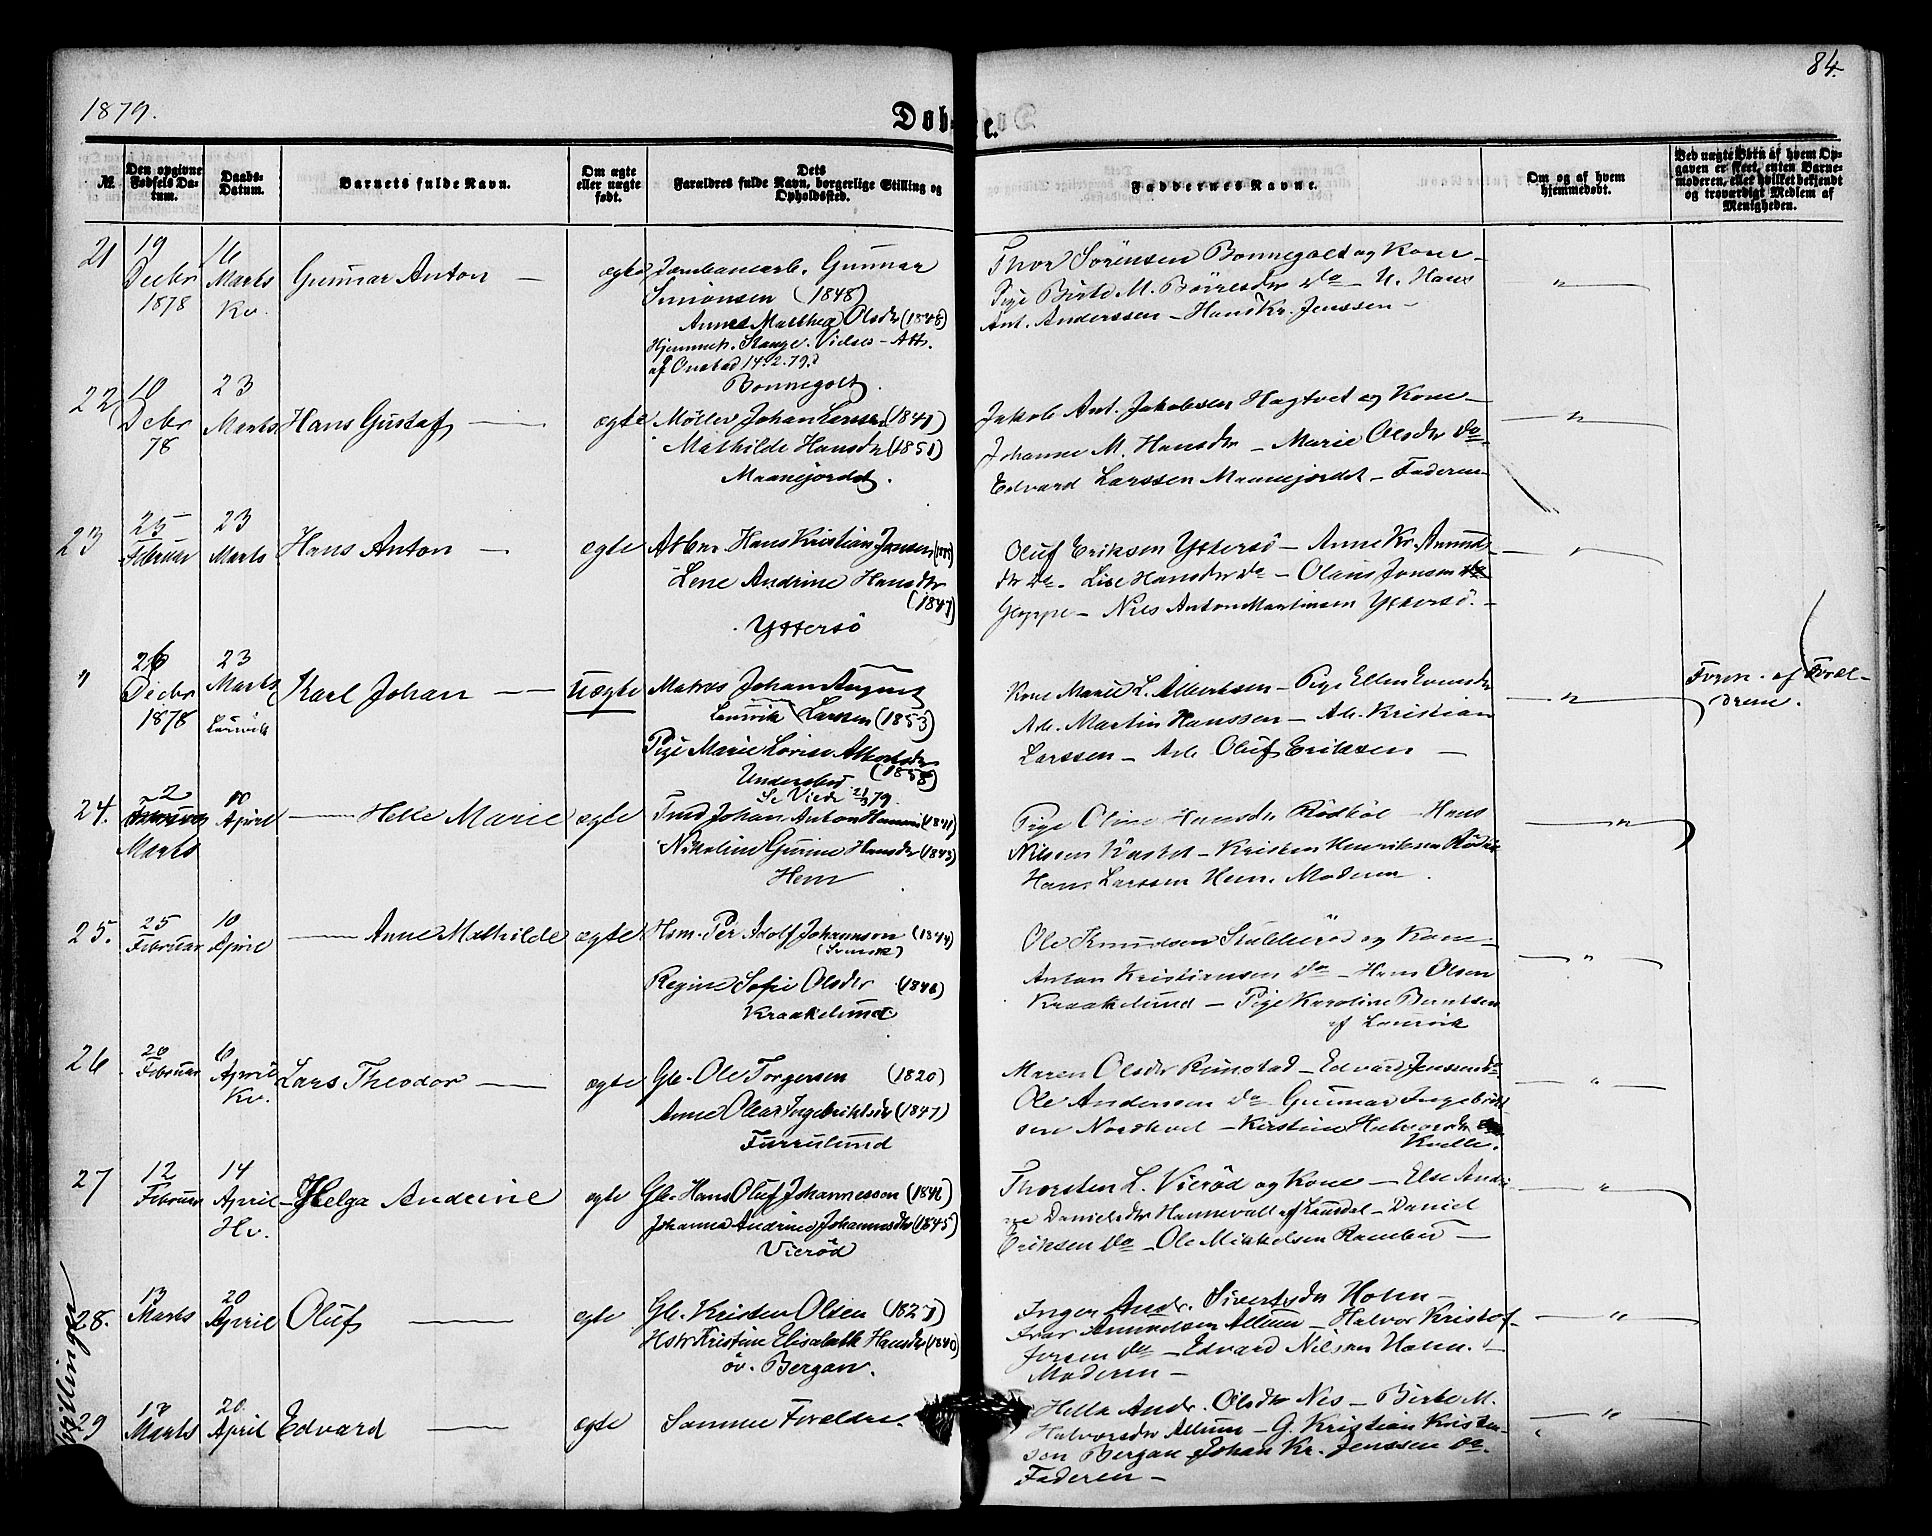 1879.
Døbte.
84.
№
Den opgivne Fødsels Datum.
Daabs-Datum.
Barnets fulde Navn.
Om ægte eller uægte født.
Dets Forældres fulde Navn, borgerlige Stilling og Opholdssted.
Faddernes Navne.
Om og af hvem hjemmedøbt.
Ved uægte Børn af hvem Opgaven er skeet, enten Barnemoderen, eller hvilket bekjendt og troværdigt Medlem af Menigheden.
21
19 Decbr 1878
16 Marts Kv.
Gunnar Anton —
ægte
Jernbanearb. Gunnar
Simonsen (1848)
Anne Mathea Olsdr (1848)
Hjemmeh. Stange. Vielses-Att.
af Onstad 14.2.79.
Bonnegolt
Thor Sörensen Bonnegolt og Kone —
Pige Birte M. Börresdr do — U. Hans
Ant. Anderssen — Hans Kr. Jenssen —
22
10 Decbr 78
23 Marts
Hans Gustaf —
ægte
Møller Johan Larsen (1841)
Mathilde Hansdr (1851)
Maanejordet.
Jakob Ant. Jakobsen Hagtvet og Kone —
Johanne M. Hansdr — Marie Olsdr do
Edvard Larssen Maanejordet — Faderen —
23
25 Februar
23 Marts
Hans Anton —
ægte
Arbm Hans Kristian Jansen
Lene Andrine Hansdr
(1847)
Yttersö
Oluf Eriksen Yttersö — Anne Kr. Amunds
dr do — Lise Hansdr do — Olaus Jonsen
Gloppe — Nils Anton Martinsen Yttersö. —
"
26 Decbr 1878
23 Marts Laurvik
Karl Johan —
uægte
Matros Johan August
Laurvik Larsen (1853)
Pige Marie Lovise Albertsdr
Undersbo (1858)
Se Viede 21/3 79.
Kone Marie L. Albertsen — Pige Ellen Evensdr
Arb. Martin Hanssen — Arb. Kristian
Larssen — Arb Oluf Eriksen —
Foræn. af Foræl-
drene.
24.
2 Februar Marts
10 April
— Helle Marie
ægte
Johan Anton Hansen (1841)
Nikoline Gurine Hansdr (1843)
Hem
Pige Oline Hansdr Rödbøl — Hans
Nilssen Kastet — Kristen Henriksen Rödb
Hans Larssen Hem. Moderen.
25.
25 Februar
10 April
— Anne Mathilde
ægte
Hsm. Per Adolf Johannson (1844)
(Svensk)
Regine Sofie Olsdr (1846)
Kraakelund
Ole Knudsen Stubberöd og Kone —
Anton Kristiansen do — Hans Olsen
Kraakelund — Pige Karoline Berntsen
af Laurvik
26
20 Februar
6 April Kv.
Lars Theodor —
ægte
Gb. Ole Torgersen (1820)
Anne Olea Ingebriktsdr (1847)
Furrulund
Maren Olsdr Rimstad — Edvard Jenssen do
Ole Andersen do Gunnar Ingebrikt
sen Nordkvel — Kirstine Halvorsdr
Kvelle.
27
12 Februar
14 April Hv.
Helga Andrine
ægte
Gb. Hans Oluf Johannesson (1846)
Johanne Andrine Johannesdr (1845)
Vieröd
Thorsten L. Vieröd og Kone — Else Andri
ne Danielsdr Hannevall af Laurdal — Daniel
Eriksen do — Ole Mikkelsen Rambu —
28.
13 Marts
20 April
Oluf —
ægte
Gb. Kristen Olsen (1827)
Hstr Kristine Elisabath Hansdr (1840)
öv. Bergan.
Inger Andr. Sivertsdr Holm —
Ivar Amundsen Allum — Halvor Kristof-
fersen do — Edvard Nilsen Holm. —
Moderen —
Tvillinger
29
13 Marts
20 April
Edvard —
ægte
Samme Forældre.
Helle Andr. Olsdr Nes — Birte M.
Halvorsdr Allum — G. Kristian Kristen-
sen Bergan — Johan Kr. Jenssen do.
Faderen —